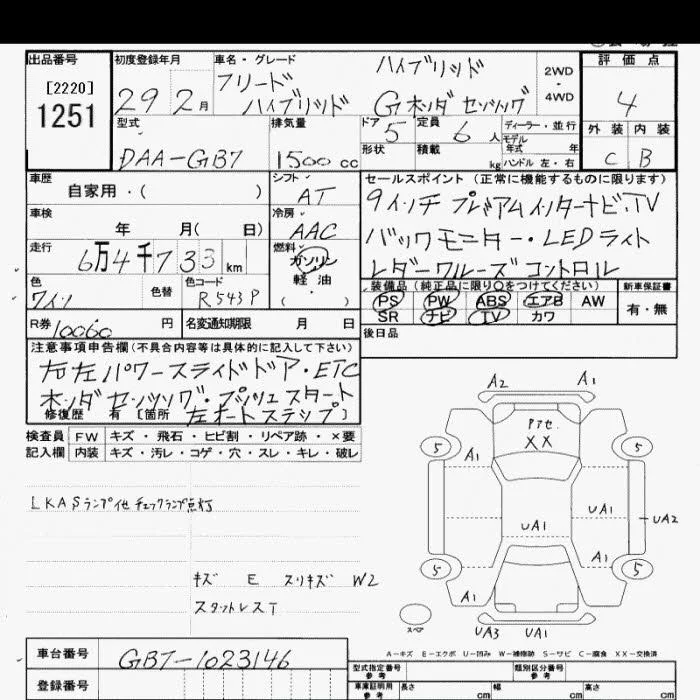 出品番号 初度登録年月 車名・グレード 評価点
[2220]
1251
29 2月
フリード ハイブリッド
ハイブリッド Gホンダセンシング
2WD
・
4WD
4
外装 内装
C B
型式 排気量 ドア 定員 ディーラー・並行
DAA-GB7 1500cc 5 6人 モデル年式 年
形状 積載 kg ハンドル 左・右
車歴 シフト セールスポイント (正常に機能するものに限ります)
自家用・( ) AT
9インチプレミアムインターナビ.TV
車検 冷房
年 月( 日) AAC
バックモニター・LEDライト
走行 燃料
6万4千733km ガソリン
軽油
( )
レダークルーズコントロール
色 色替 色コード
ワイン R543P
装備品 (純正品に限り○をつけてください) 新車保証書
PS PW ABS エアB AW 有・無
SR ナビ TV カワ
R券 10060円 名変通知期限 月 日
後日品
注意事項申告欄(不具合内容等は具体的に記入して下さい)
右左パワースライドドア・ETC
ホンダセンシング・プッシュスタート
修復歴 有 [箇所 左オートステップ]
検査員 FW キズ・飛石・ヒビ割・リペア跡・×要
記入欄 内装 キズ・汚レ・コゲ・穴・スレ・キレ・破レ
LKASランプ他チェックランプ点灯
キズ E スリキズ W2
スタットレスT
A2 A1
Pアセ.
XX
5 A1 5
UA1
UA1 UA2
A1
5 5
A1
スペア
UA3 UA1
A-キズ E-エクボ U-凹み W-補修跡 S-サビ C-腐食 XX-交換済
車台番号 GB7-1023146
登録番号
型式指定番号 参考 類別区分番号 参考
車庫証明用 参考 長さ cm 幅 cm 高さ cm